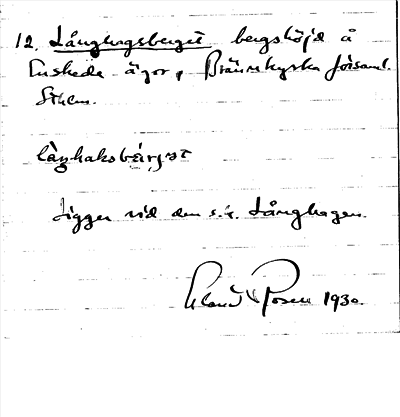 12. Långhagsberget bergshöjd å
Enskede ägor, Brännkyrka församl.
Sthlm.
låŋhaksbärjət
Ligger vid den s.k. Långhagen.
Erland Rosell 1930.